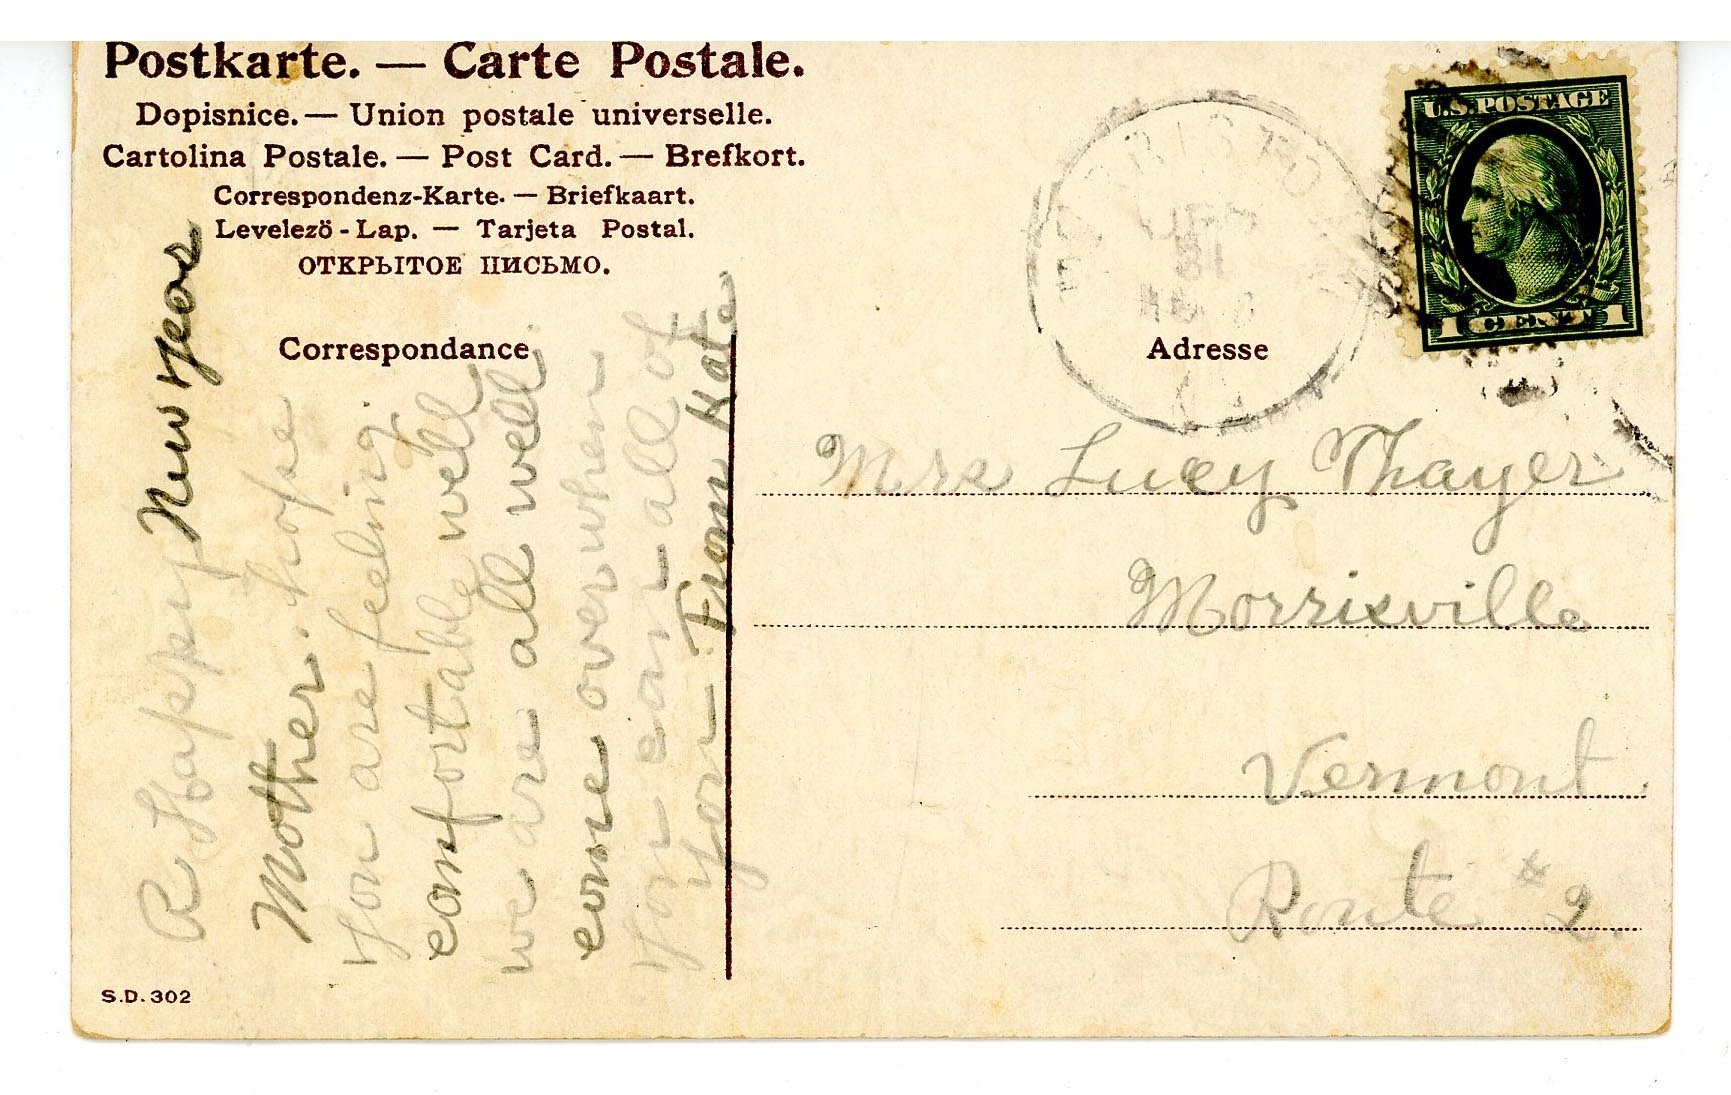 Postkarte. — Carte Postale.
Dopisnice. — Union postale universelle.
Cartolina Postale. — Post Card. — Brefkort.
Correspondenz-Karte. — Briefkaart.
Levelezö - Lap. — Tarjeta Postal.
ОТКРЫТОЕ ПИСЬМО.
Correspondance
Adresse
U.S. POSTAGE
1 CENT 1
A Happy New year
Mother. hope
you are feeling
comfortable well
we are all well
come over when
you can all of
you From Kate
Mrs Lucy Thayer
Morrisville
Vermont
Route # 2.
S.D. 302